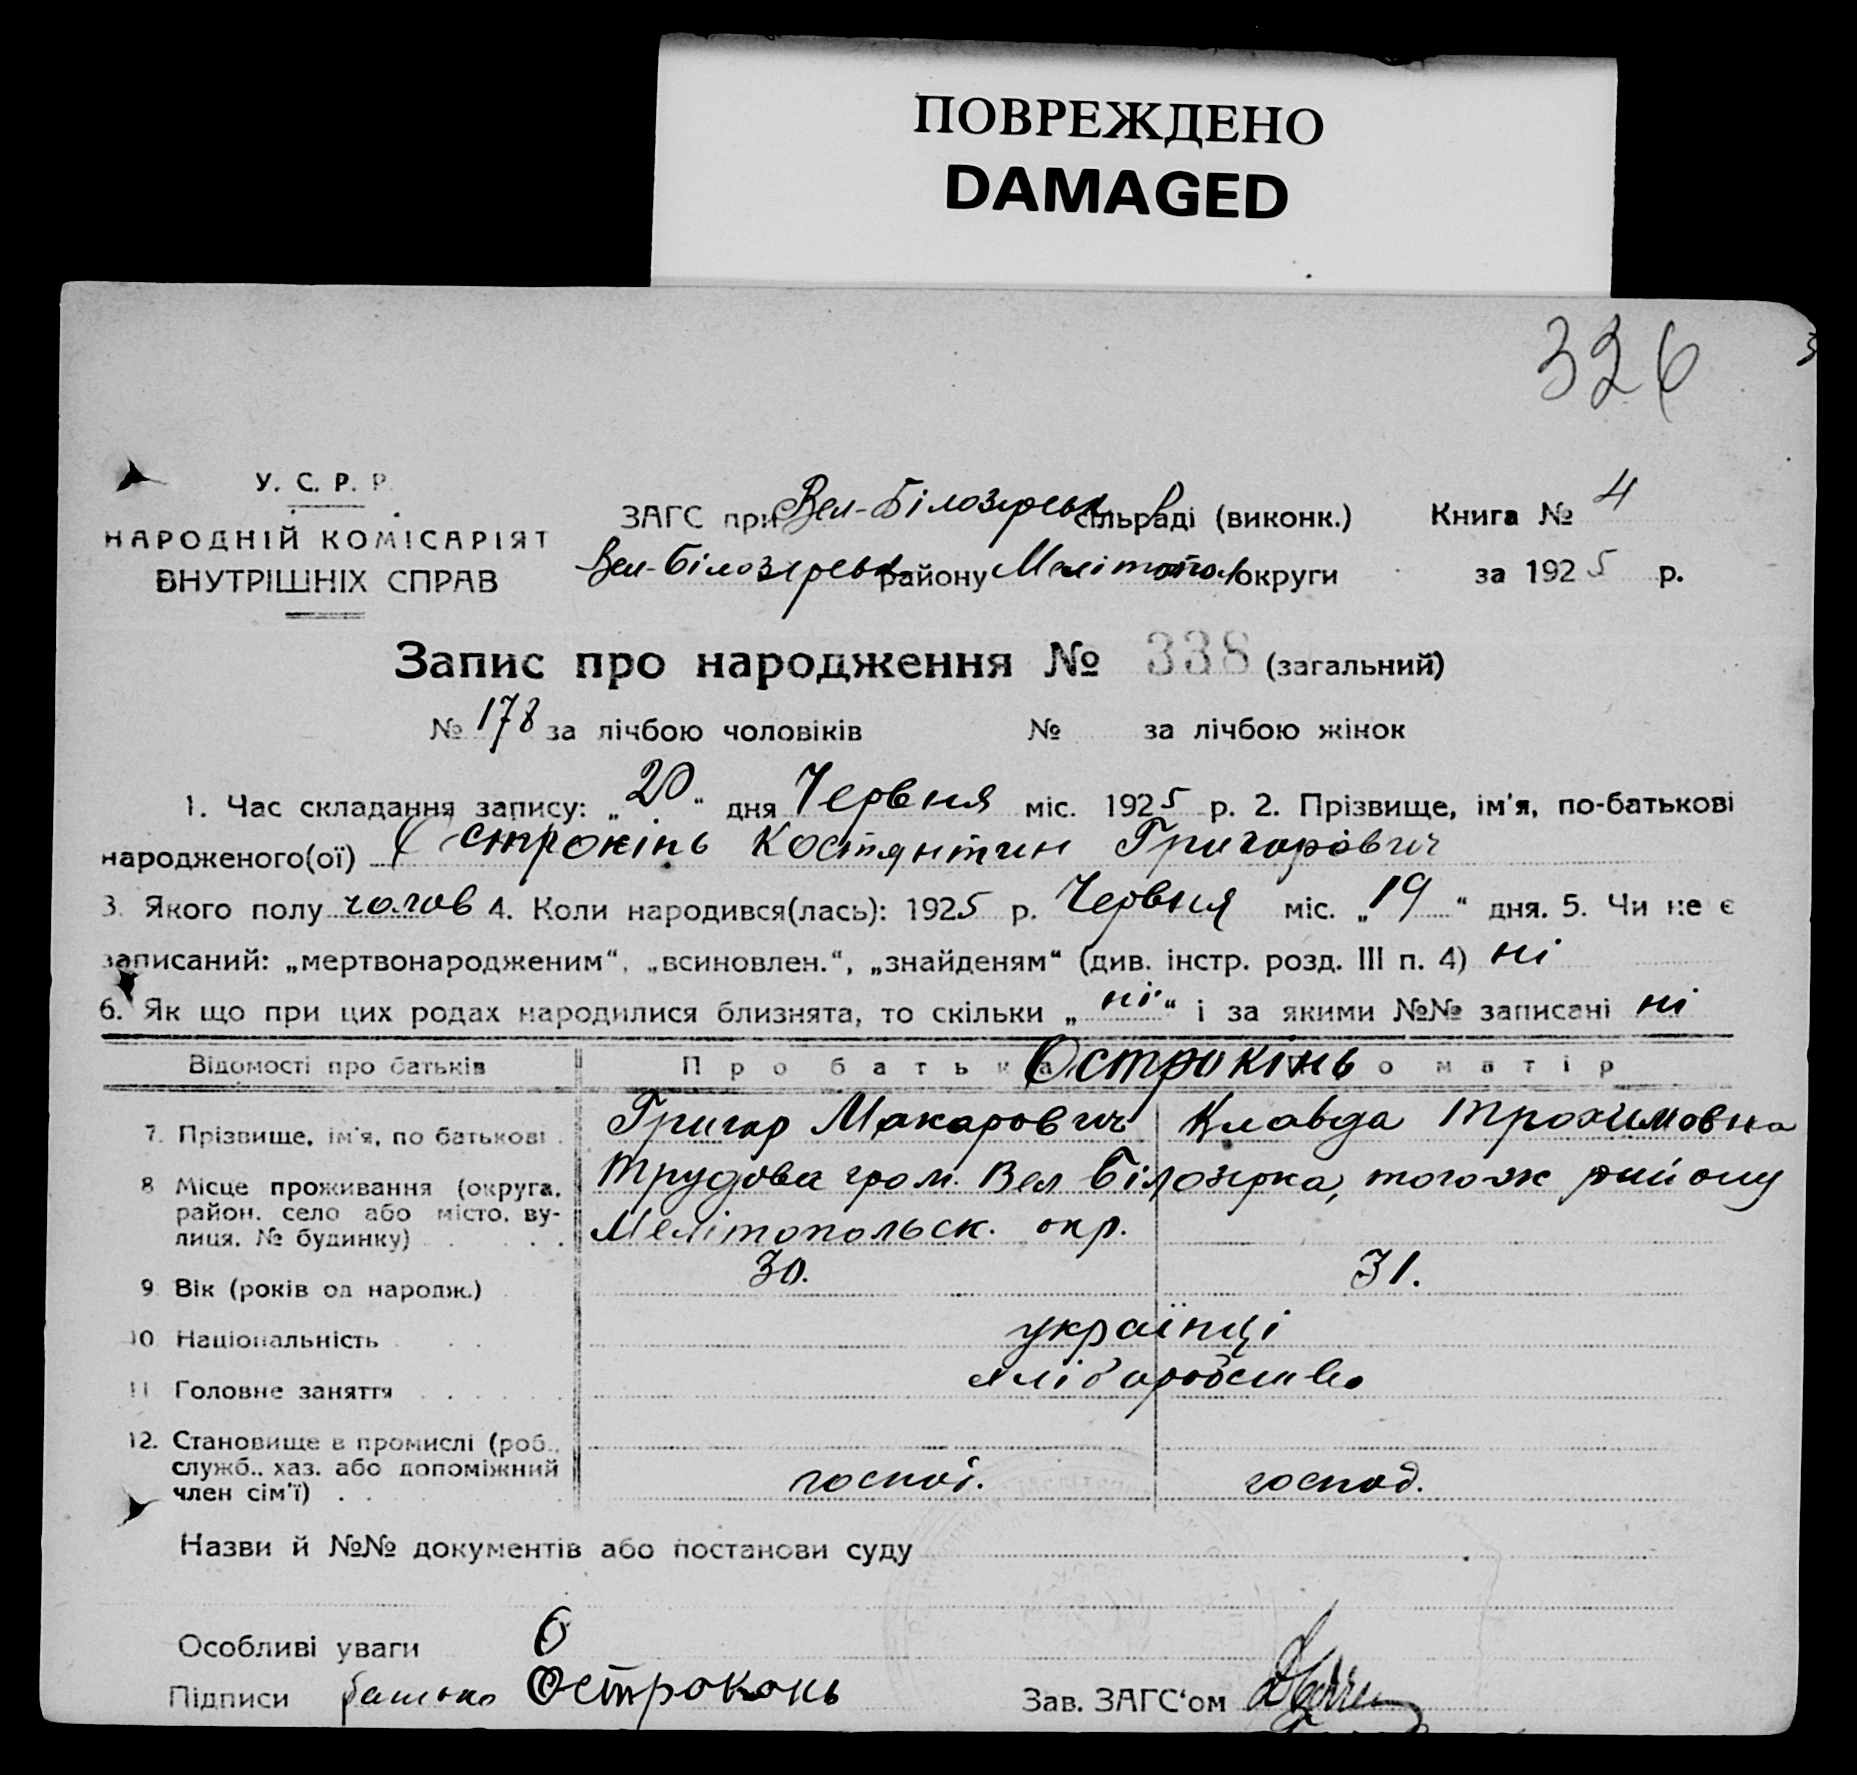 ПОВРЕЖДЕНО
DAMAGED
326
У. С. Р. Р.
НАРОДНІЙ КОМІСАРІЯТ
ВНУТРІШНІХ СПРАВ
ЗАГС при Вел-Білозерськ сільраді (виконк.) Книга № 4
Вел-Білозерськ району Мелітопол округи за 1925 р.
Запис про народження № 338 (загальний)
№ 178 за лічбою чоловіків № за лічбою жінок
1. Час складання запису: „20" дня Червня міс. 1925 р. 2. Прізвище, ім'я, по-батькові
народженого(ої) Острокінь Костянтин Григорович
3. Якого полу чолов 4. Коли народився(лась): 1925 р. Червня міс. „19" дня. 5. Чи не є
записаний: „мертвонародженим", „всиновлен.", „знайденям" (див. інстр. розд. III п. 4) ні
6. Як що при цих родах народилися близнята, то скільки „ні" і за якими №№ записані ні
Відомості про батьків Про батька Острокінь о матір
7. Прізвище, ім'я, по батькові . Григор Макарович Клавда Трохимовна
8 Місце проживання (округа, район, село або місто, вулиця, № будинку) Трудова гром. Вел Білозірка, того-ж району
Мелітопольськ. окр.
9 Вік (років од народж.) 30. 31.
10 Національність українці
11 Головне заняття хліборобство
12. Становище в промислі (роб.,
служб., хаз. або допоміжний
член сім'ї) . . господ. господ.
Назви й №№ документів або постанови суду
Особливі уваги
Підписи батько Остроконь Зав. ЗАГС'ом